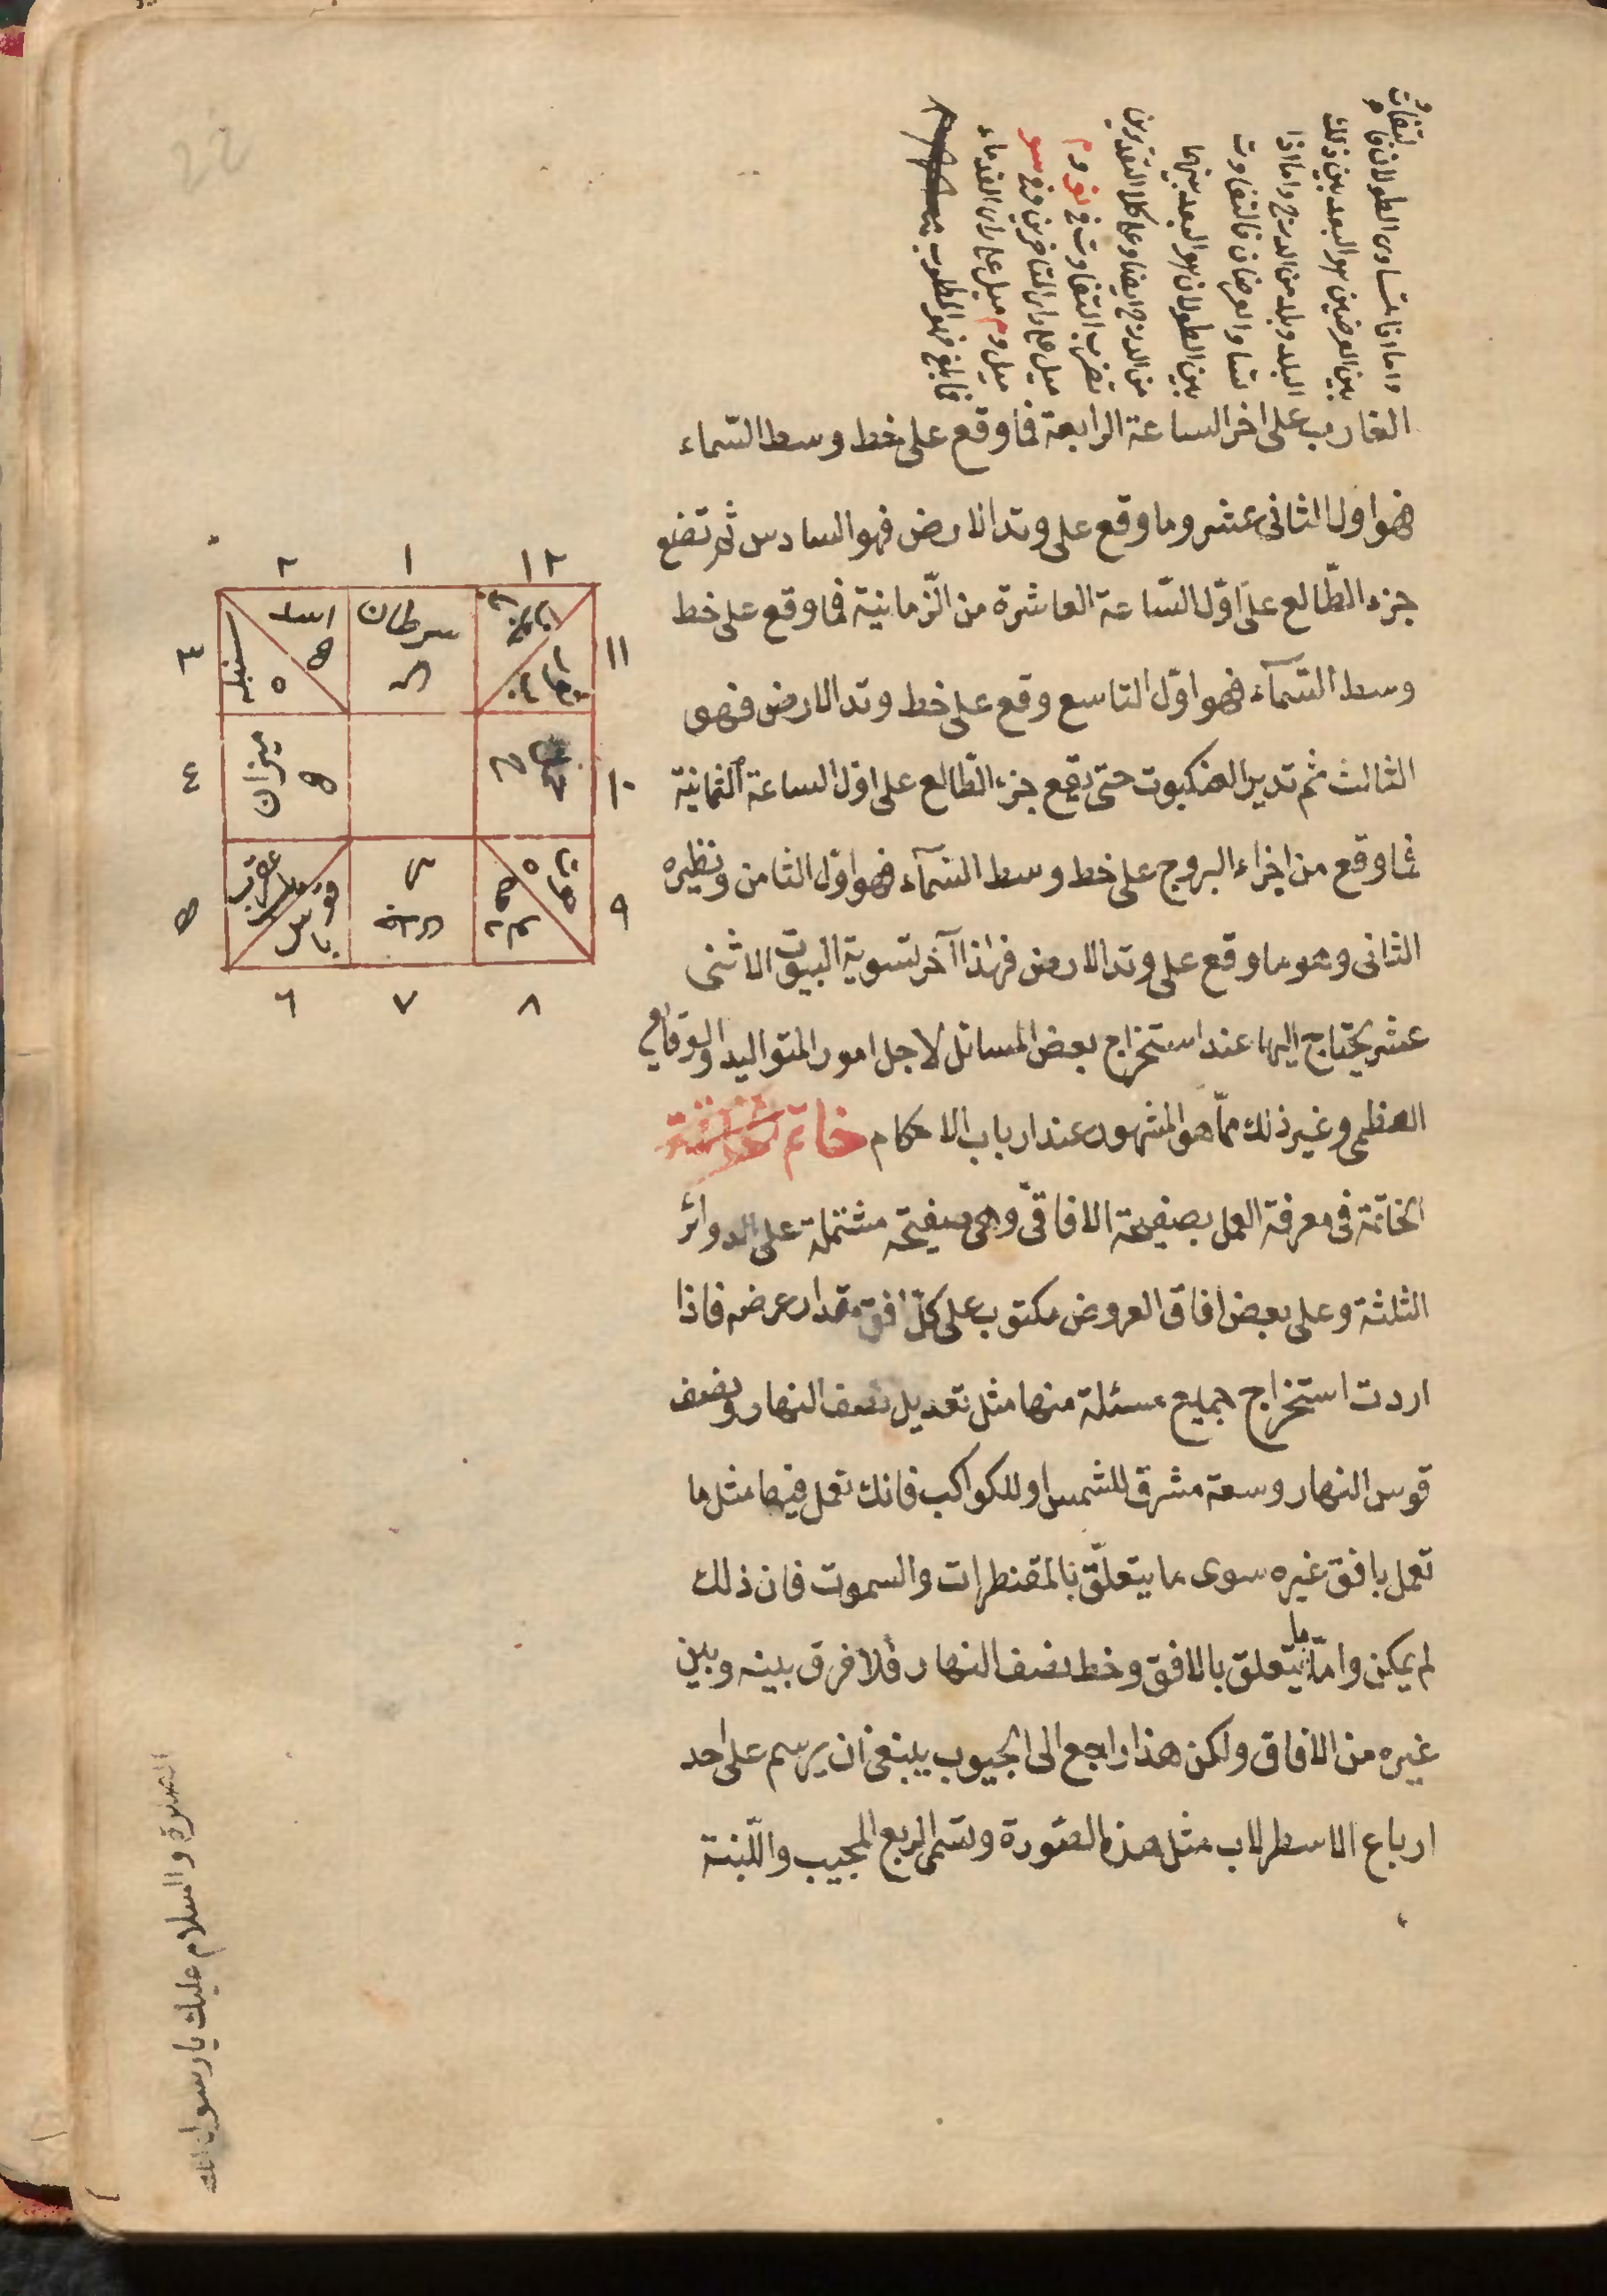 واما اذا تساوى الطولان فا
بين العرضين هو البعد بين ذلك
البلد وبلد من الدرج واما اذا
تساوا العرضان فالتفاوت
بين الطولان هو البعد بينهما
من الدرج ايضا وعلى كلا التقديرين
تضرب التفاوت في
ميل على راى المتاخرين وفي سو
ميل وم ميل على راى القدماء
فما بلغ فهو المطلوب
الغارب على اخر الساعة الرابعة فما وقع على خط وسط السّماء
فهو اول الثانى عشر وما وقع على وتد الارض فهو السادس ثم تضع
جزء الطّالع على اوّل السّاعة العاشرة من الزّمانية فما وقع على خط
وسط السّمآء فهو اوّل التاسع وقع على خط وتد الارض فهو
الثالث ثم تدير العنكبوت حتى يقع جزء الطّالع على اوّل الساعة الثمانية
فما وقع من اجزاء البروج على خط وسط السّمآء فهو اوّل الثامن ونظيره
الثانى وهو ما وقع على وتد الارض فهذا آخر تسوية البيوت الاثنى
عشر يحتاج اليها عند استخراج بعض المسائل لاجل امور المتواليد والوقائع
العظمى وغير ذلك ممّا هو المشهور عند ارباب الاحكام خاتمة
الخاتمة فى معرفة العمل بصفيحة الافاقىّ وهى صفيحة مشتملة على الدوائر
الثلثة وعلى بعض افاق العروض مكتوب على كلّ افق مقدار عرضه فاذا
اردت استخراج جميع مسئلة منها مثل تعديل نصف النهار ونصف
قوس النهار وسعة مشرق للشمس او للكواكب فانك تعمل فيها مثل ما
تعمل بافق غيره سوى ما يتعلّق بالمقنطرات والسموت فان ذلك
لم يمكن وامّا ما يتعلق بالافق وخط نصف النهار فلا فرق بينه وبين
غيره من الافاق ولكن هذا راجع الى الجيوب ينبغى ان يرسم على احد
ارباع الاسطرلاب مثل هذه الصّورة وتسمى الربع المجيب واللّبنة
١٢ ١ ٢
اسد
سرطان
سنبله
٣ ١١
ميزان
٤ ١٠
عقرب
قوس
٥ ٩
٦ ٧ ٨
الصلوة والسلام عليك يا رسول الله
22